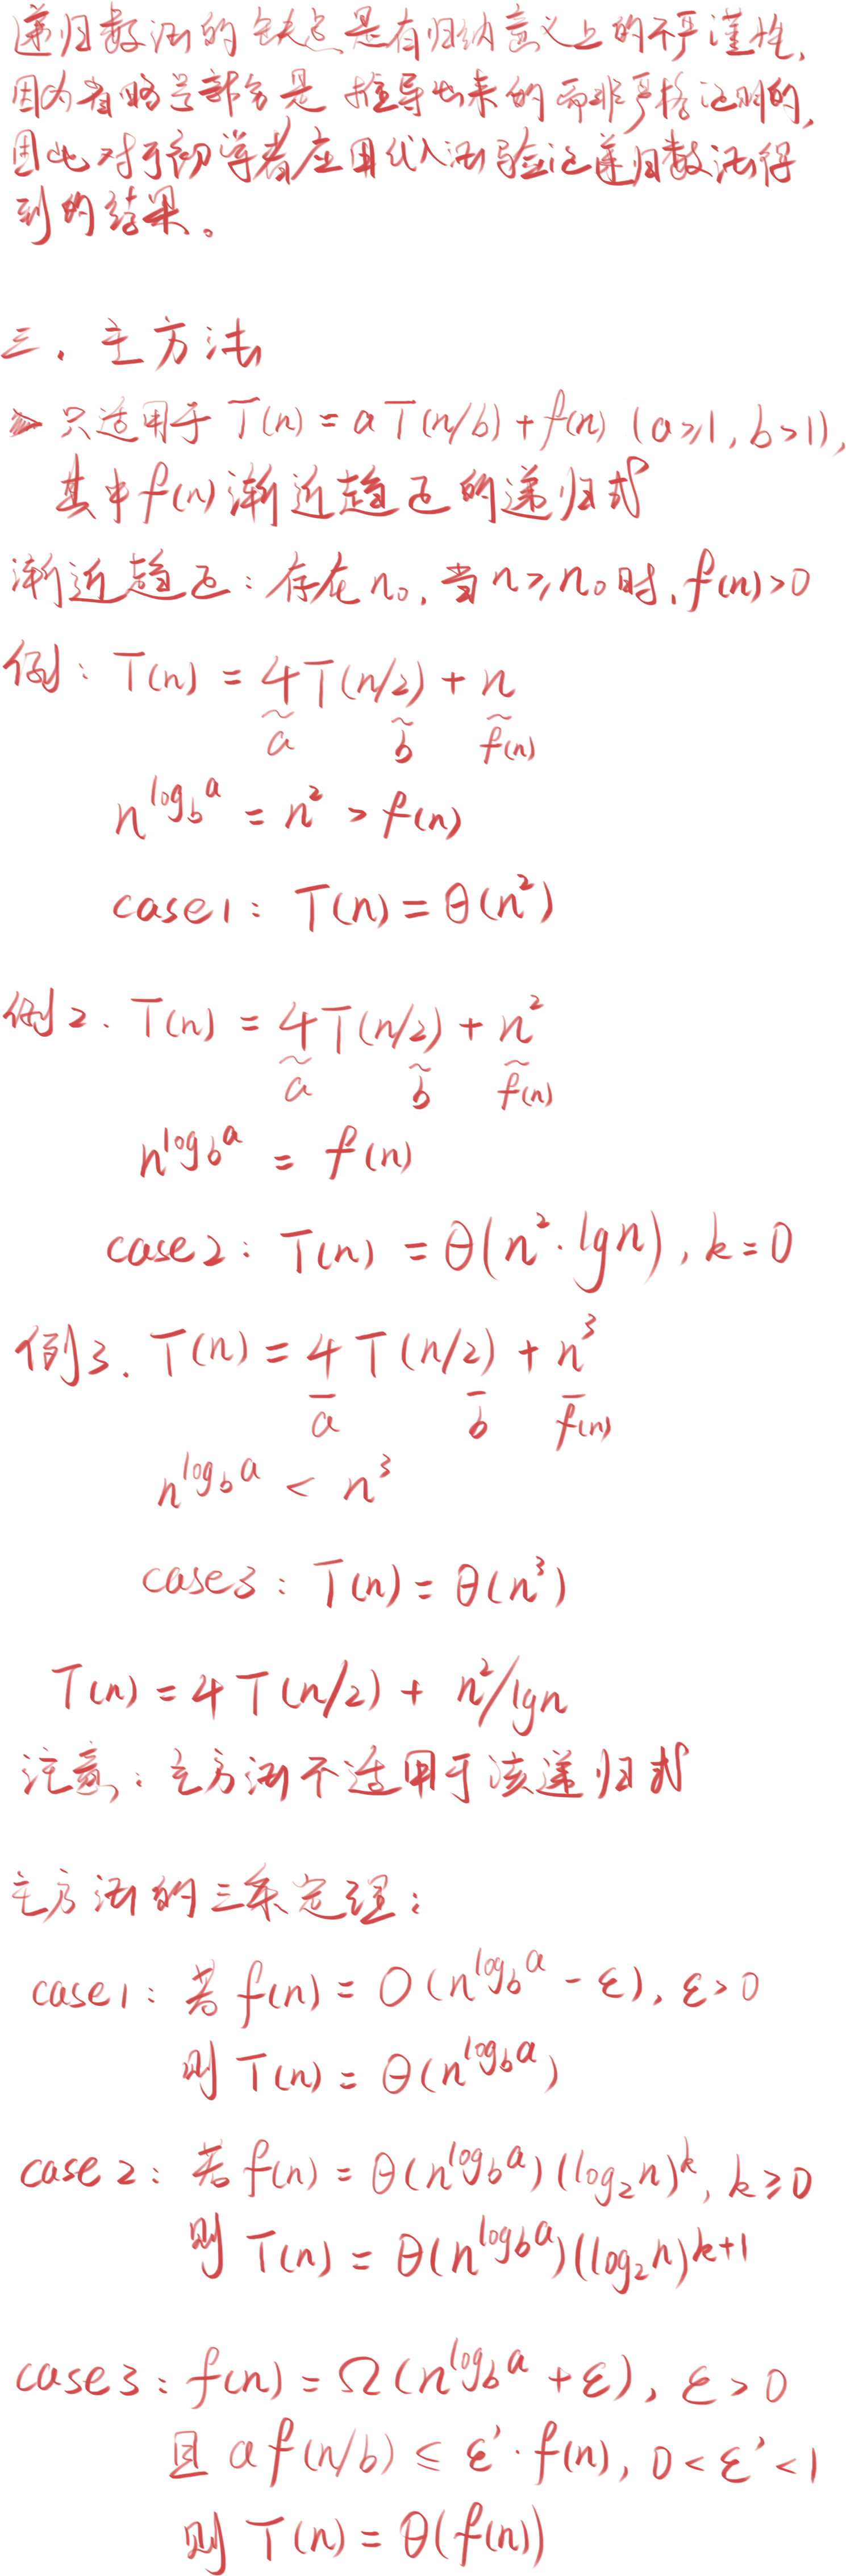 递归数法的缺点是有归纳意义上的不严谨性,
因为省略号部分是推导出来的而非严格证明的,
因此对于初学者应用代入法验证递归数法得
到的结果。
三. 主方法
只适用于 T(n) = aT(n/b) + f(n) (a≥1, b>1),
其中f(n)渐近趋正的递归式
渐近趋正: 存在n₀, 当n≥n₀时, f(n)>0
例: T(n) = 4T(n/2) + n
a b f(n)
n^{log_b a} = n² > f(n)
case1: T(n) = θ(n²)
例2. T(n) = 4T(n/2) + n²
a b f(n)
n^{log_b a} = f(n)
case2: T(n) = θ(n²·lgn), k=0
例3. T(n) = 4T(n/2) + n³
a b f(n)
n^{log_b a} < n³
case3: T(n) = θ(n³)
T(n) = 4T(n/2) + n²/lgn
注意: 主方法不适用于该递归式
主方法的三条定理:
case1: 若 f(n) = O(n^{log_b a} - ε), ε>0
则 T(n) = θ(n^{log_b a})
case2: 若 f(n) = θ(n^{log_b a})(log₂n)^k, k≥0
则 T(n) = θ(n^{log_b a})(log₂n)^{k+1}
case3: f(n) = Ω(n^{log_b a} + ε), ε>0
且 af(n/b) ≤ ε'·f(n), 0<ε'<1
则 T(n) = θ(f(n))